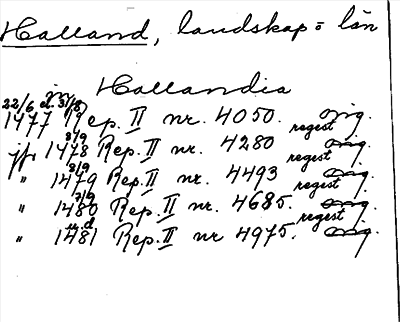 Halland, landskap = län
in Hallandia
22/6 el. 31/8
1477 Rep. II nr. 4050. orig.
8/9 regest
jfr 1478 Rep. II nr. 4280 orig.
8/9 regest
" 1479 Rep. II nr. 4493 orig.
7/9 regest
" 1480 Rep. II nr. 4685. orig.
u.d. regest
" 1481 Rep. II nr 4975. orig.